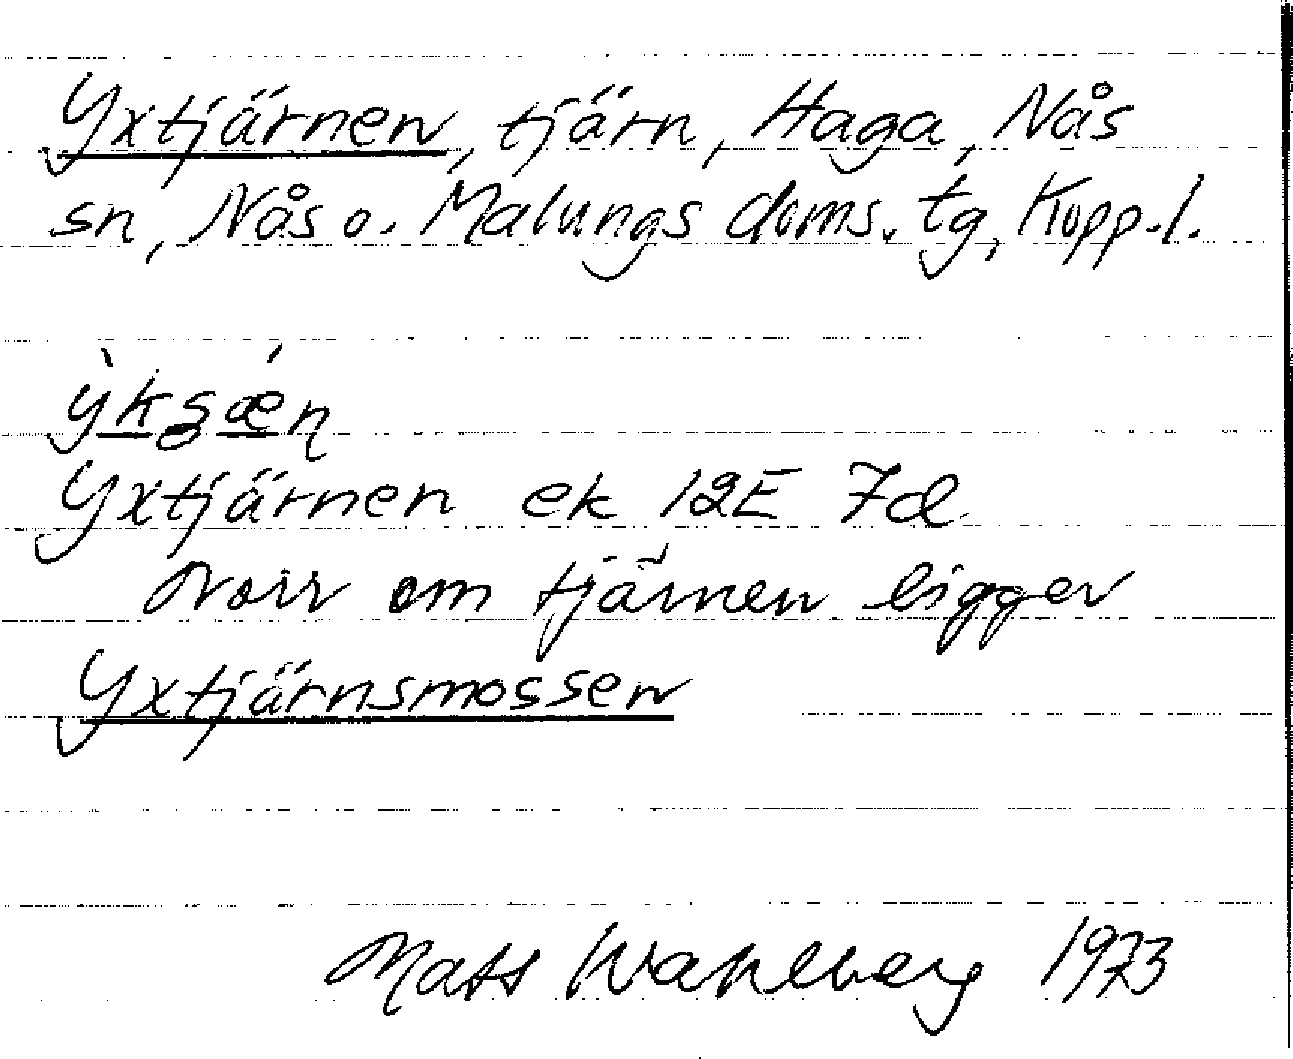 Yxtjärnen, tjärn, Haga, Nås
sn, Nås o. Malungs doms. tg, Kopp. l.
ỳksǽn
Yxtjärnen ek 12E 7d
Norr om tjärnen ligger
Yxtjärnsmossen
Mats Wahlberg 1973